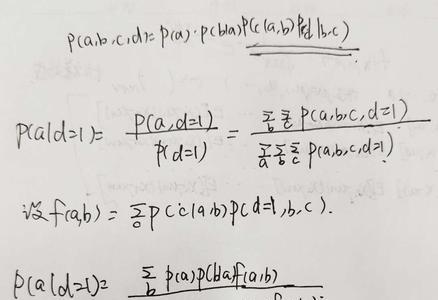 p(a,b,c,d)= p(a)·p(b|a)p(c|a,b)p(d|b,c)
p(a|d=1)= p(a,d=1)/p(d=1) = Σ_b Σ_c p(a,b,c,d=1) / Σ_a Σ_b Σ_c p(a,b,c,d=1)
设 f(a,b) = Σ_c p(c|a,b)p(d=1,b,c).
p(a|d=1)= Σ_b p(a)p(b|a)f(a,b)